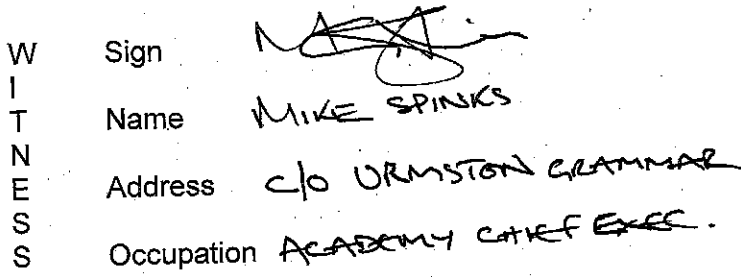 WITNESS
Sign
Name MIKE SPINKS
Address c/o URMSTON GRAMMAR
Occupation ACADEMY CHIEF EXEC.